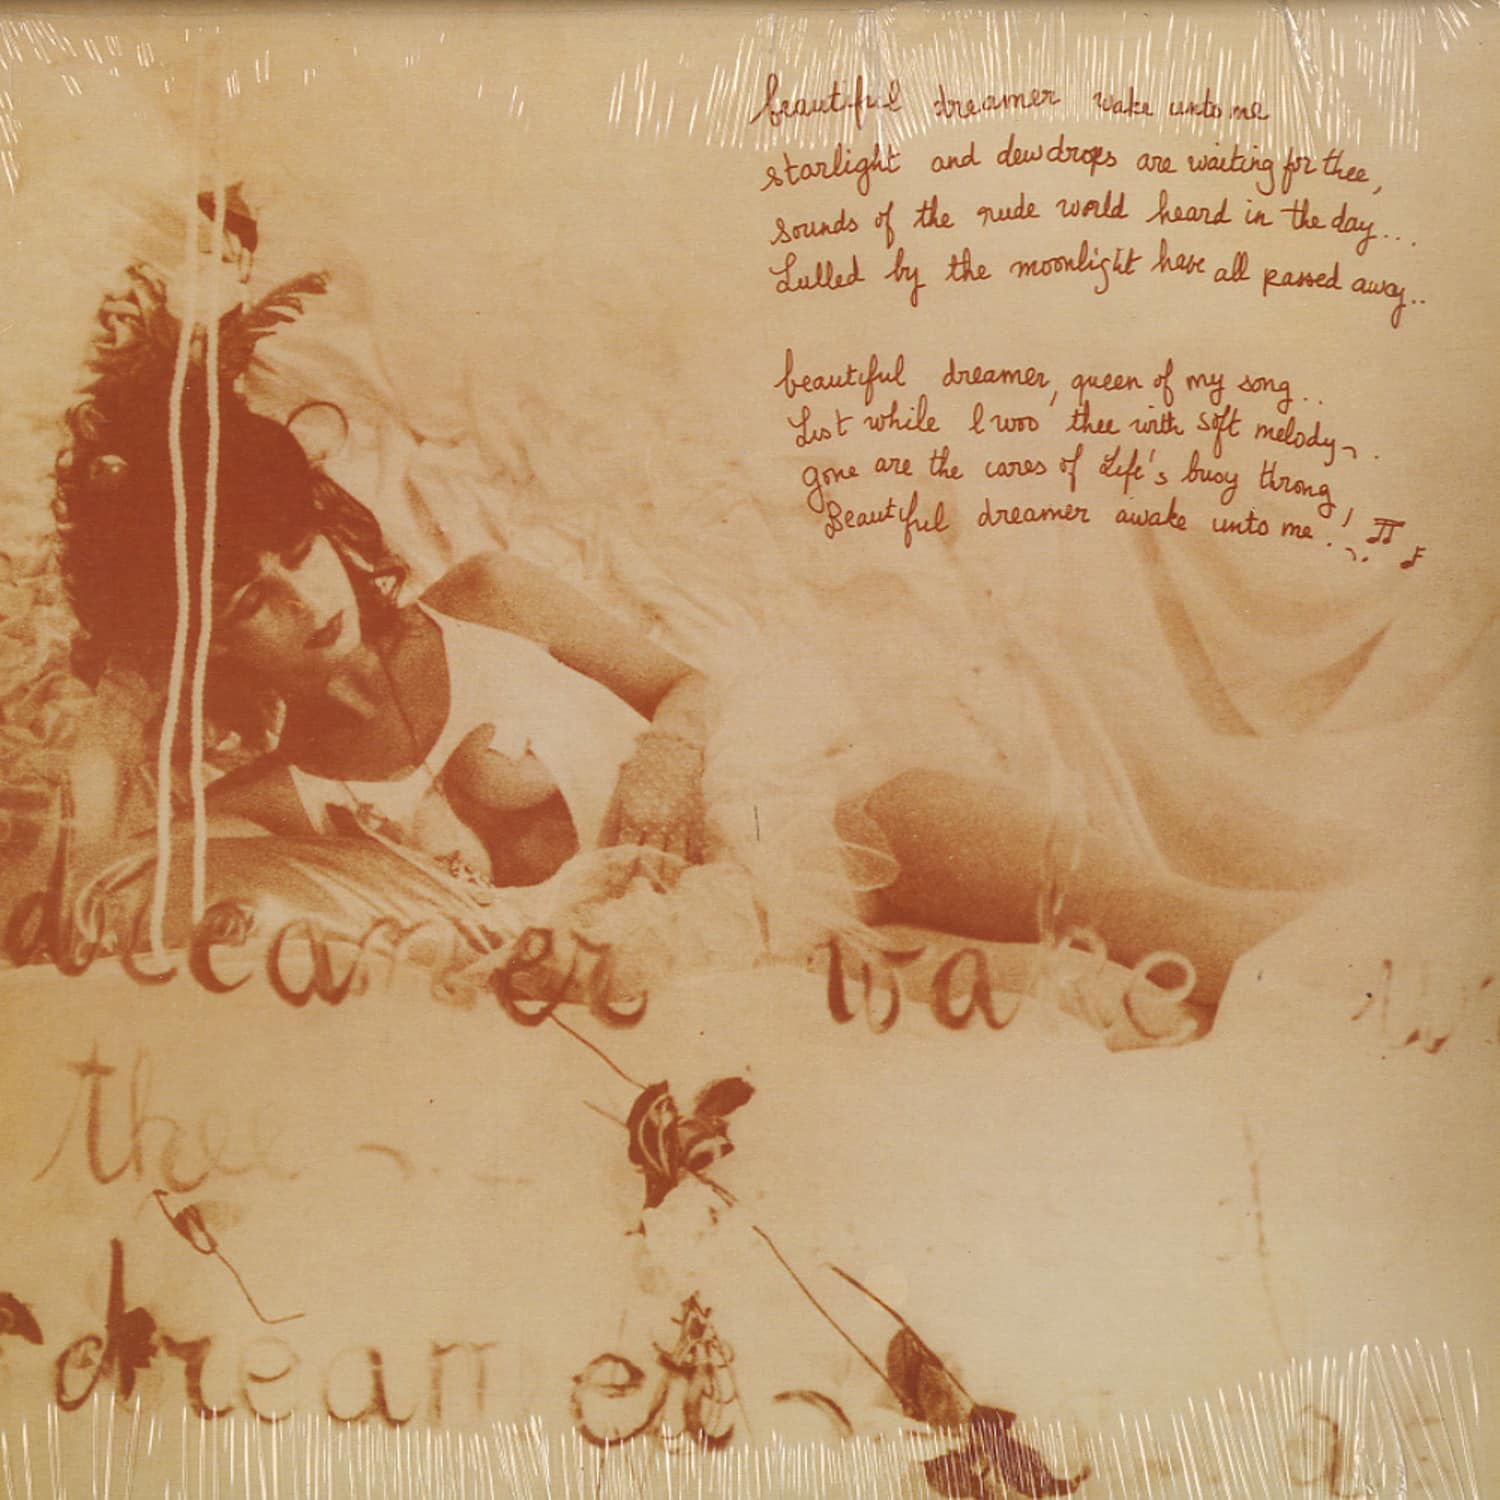 beautiful dreamer wake unto me
starlight and dewdrops are waiting for thee,
sounds of the rude world heard in the day...
Lulled by the moonlight have all passed away..
beautiful dreamer, queen of my song..
List while I woo thee with soft melody.
gone are the cares of Life's busy throng,
Beautiful dreamer awake unto me!
dreamer wake
thee
dreamer